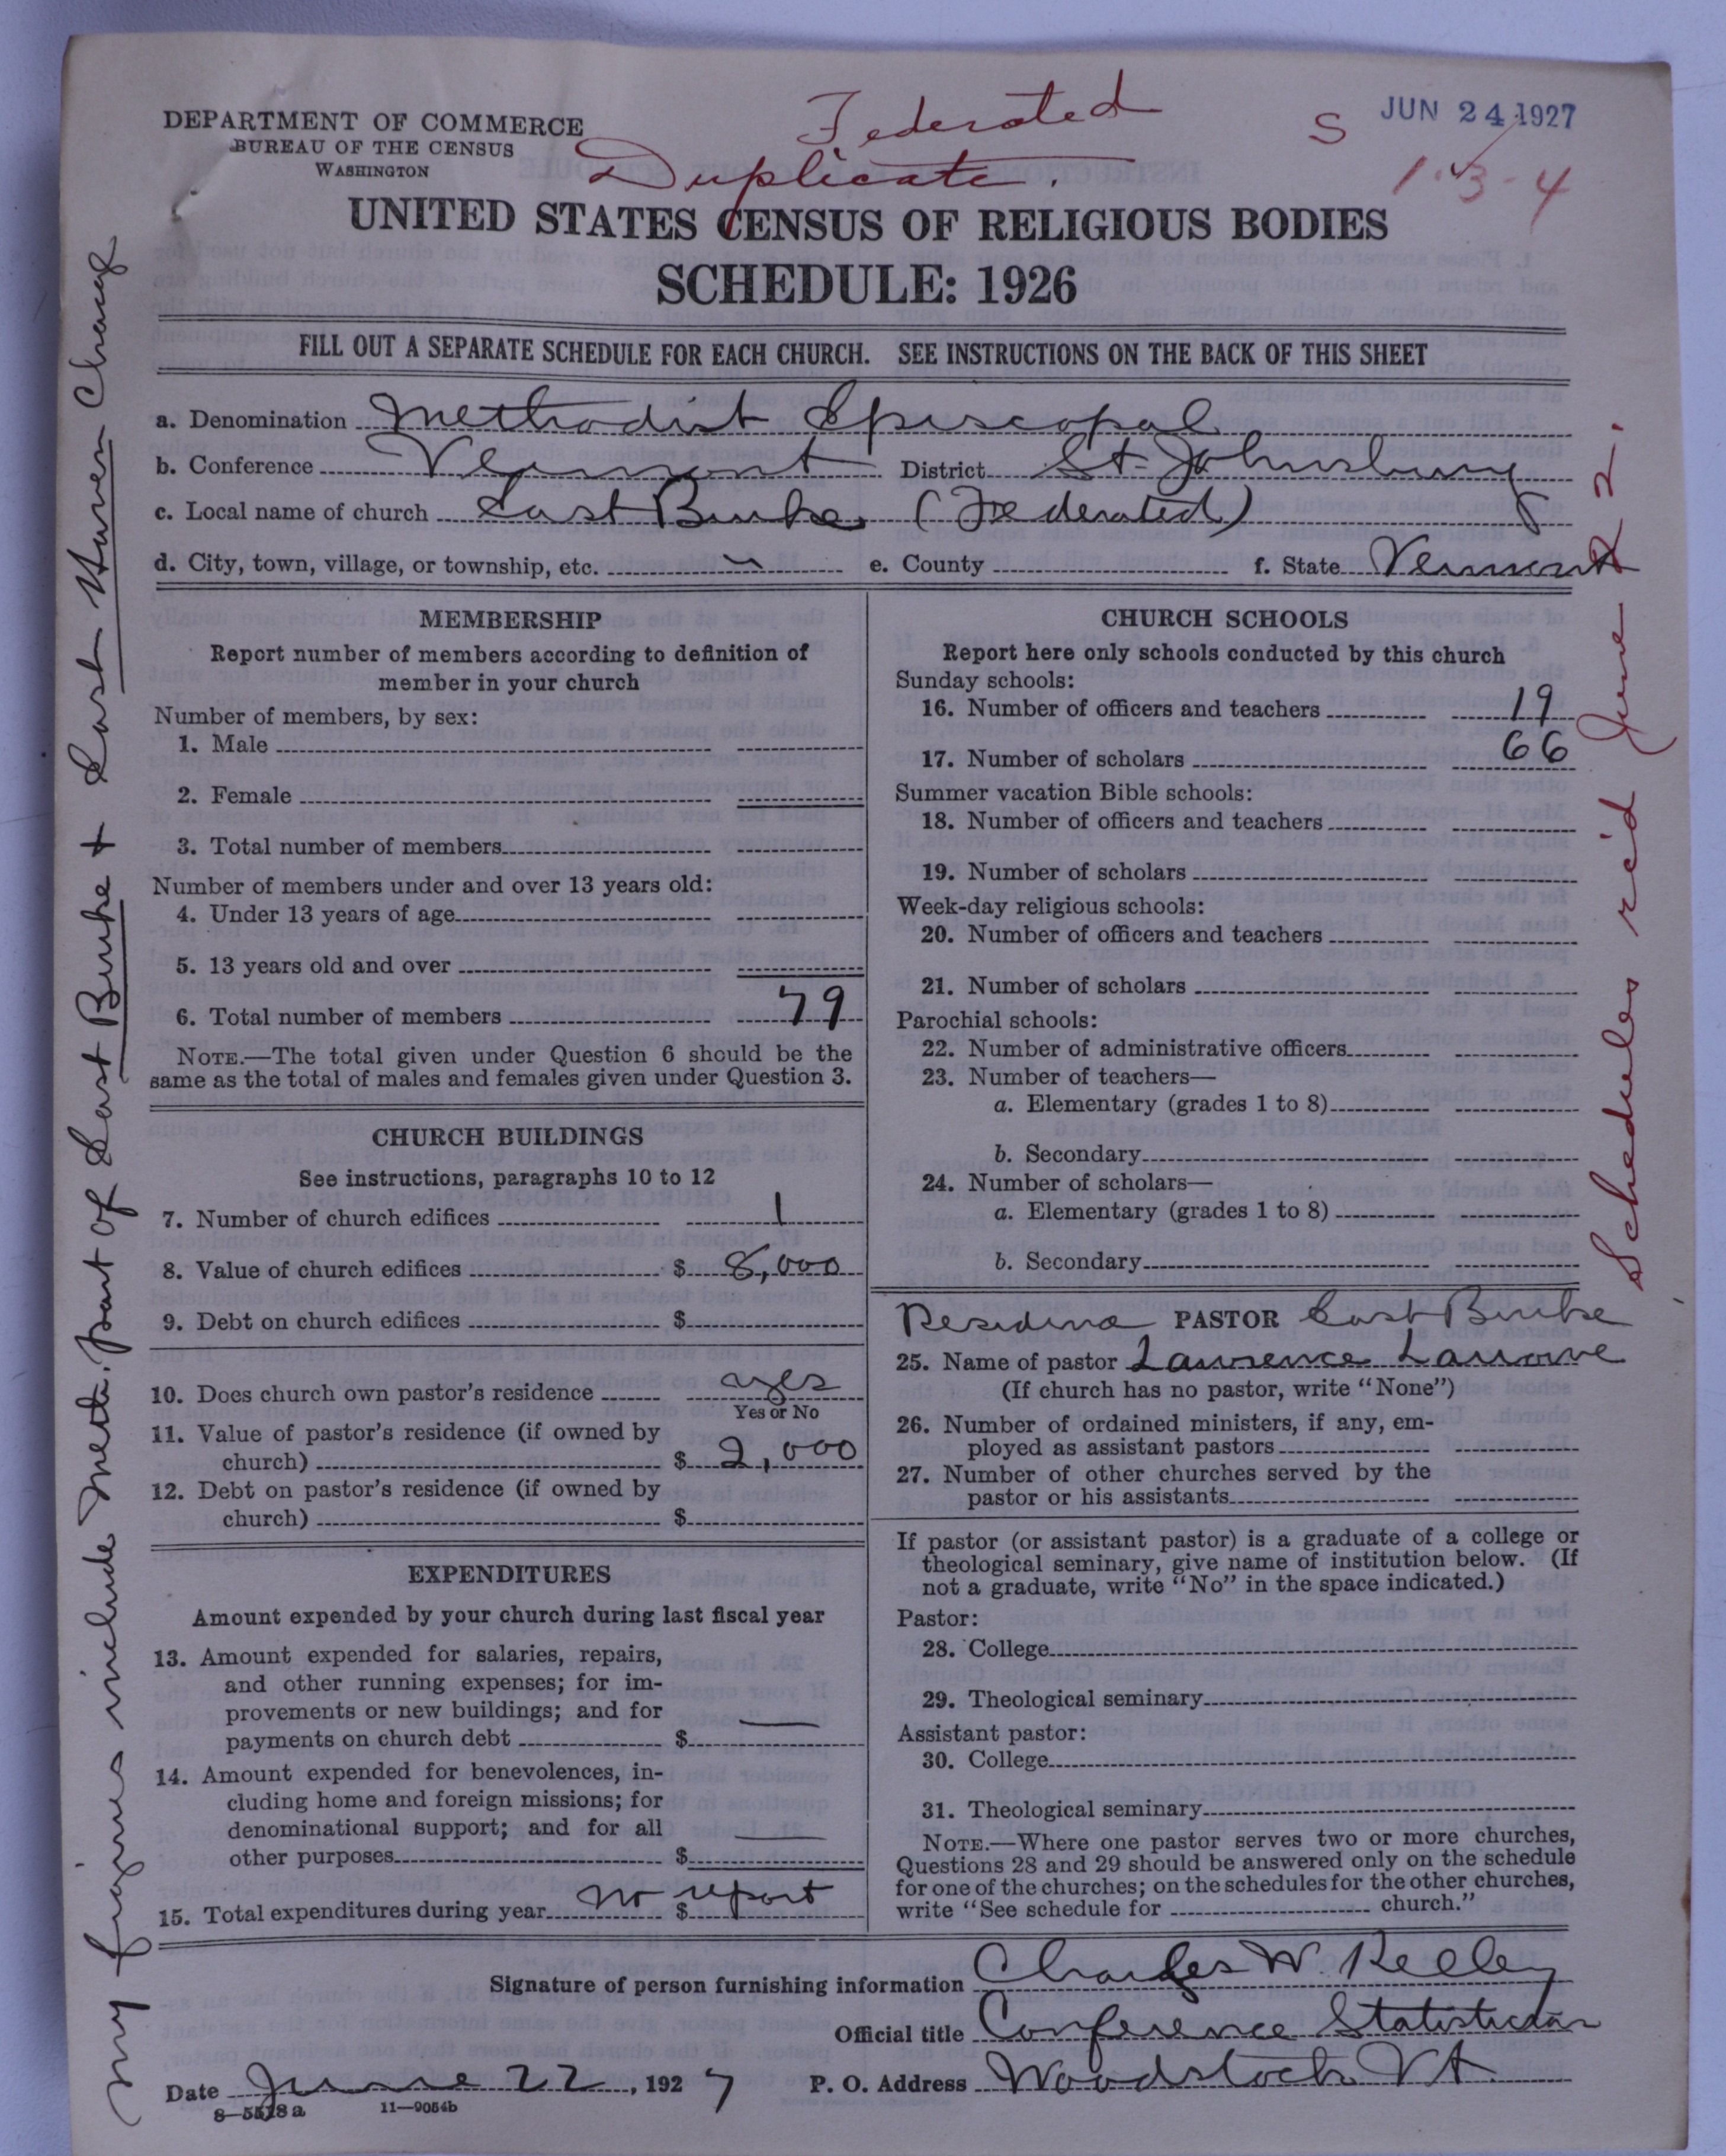 DEPARTMENT OF COMMERCE
BUREAU OF THE CENSUS
WASHINGTON
Federated
Duplicate.
S
JUN 24 1927
1-3-4
UNITED STATES CENSUS OF RELIGIOUS BODIES
SCHEDULE: 1926
FILL OUT A SEPARATE SCHEDULE FOR EACH CHURCH. SEE INSTRUCTIONS ON THE BACK OF THIS SHEET
a. Denomination Methodist Episcopal
b. Conference Vermont District St. Johnsbury
c. Local name of church East Burke (Federated)
d. City, town, village, or township, etc. e. County f. State Vermont
MEMBERSHIP
Report number of members according to definition of
member in your church
Number of members, by sex:
1. Male
2. Female
3. Total number of members
Number of members under and over 13 years old:
4. Under 13 years of age
5. 13 years old and over
6. Total number of members 79
NOTE.—The total given under Question 6 should be the
same as the total of males and females given under Question 3.
CHURCH BUILDINGS
See instructions, paragraphs 10 to 12
7. Number of church edifices 1
8. Value of church edifices $ 8,000
9. Debt on church edifices $
10. Does church own pastor's residence yes
Yes or No
11. Value of pastor's residence (if owned by
church) $ 2,000
12. Debt on pastor's residence (if owned by
church) $
EXPENDITURES
Amount expended by your church during last fiscal year
13. Amount expended for salaries, repairs,
and other running expenses; for im-
provements or new buildings; and for
payments on church debt $ —
14. Amount expended for benevolences, in-
cluding home and foreign missions; for
denominational support; and for all
other purposes $ —
15. Total expenditures during year $ no report
CHURCH SCHOOLS
Report here only schools conducted by this church
Sunday schools:
16. Number of officers and teachers 19
17. Number of scholars 66
Summer vacation Bible schools:
18. Number of officers and teachers
19. Number of scholars
Week-day religious schools:
20. Number of officers and teachers
21. Number of scholars
Parochial schools:
22. Number of administrative officers
23. Number of teachers—
a. Elementary (grades 1 to 8)
b. Secondary
24. Number of scholars—
a. Elementary (grades 1 to 8)
b. Secondary
PASTOR East Burke
25. Name of pastor Lawrence Larrowe
(If church has no pastor, write "None")
26. Number of ordained ministers, if any, em-
ployed as assistant pastors
27. Number of other churches served by the
pastor or his assistants
If pastor (or assistant pastor) is a graduate of a college or
theological seminary, give name of institution below. (If
not a graduate, write "No" in the space indicated.)
Pastor:
28. College
29. Theological seminary
Assistant pastor:
30. College
31. Theological seminary
NOTE.—Where one pastor serves two or more churches,
Questions 28 and 29 should be answered only on the schedule
for one of the churches; on the schedules for the other churches,
write "See schedule for church."
Signature of person furnishing information Charles W Kelley
Official title Conference Statistician
Date June 22, 1927 P. O. Address Woodstock Vt.
8—5518a 11—9054b
My figures include Meth. part of East Burke & East Haven Charge
Schedules rc'd June 22.